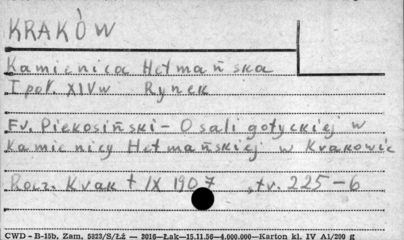 KRAKÓW
Kamienica Hetmańska
I poł. XIV w Rynek
Fr. Piekosiński - O sali gotyckiej w
Kamienicy Hetmańskiej w Krakowie
Rocz. Krak t IX 1907, str. 225-6
CWD - B-15b. Zam. 5823/S/Łż — 2016—Łak—15.11.56—4.000.000—Karton kl. IV A1/200 g